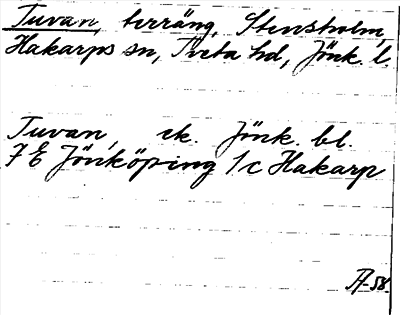 Tuvan, terräng, Stensholm,
Hakarps sn, Tveta hd, Jönk. l.
Tuvan, ek. Jönk. bl.
7 E Jönköping 1c Hakarp
A-58.